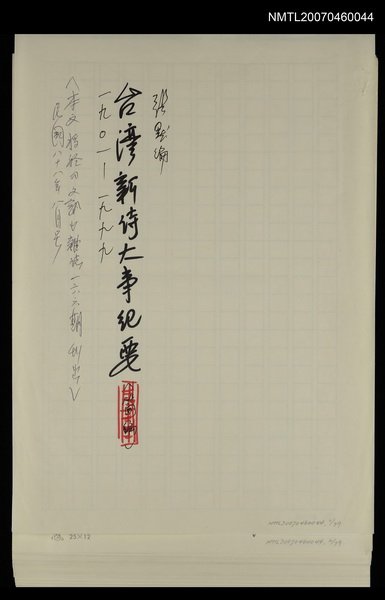 NMTL20070460044
張默編
台湾新诗大事紀要
一九〇一—一九九九
〈本文指給〇文訊〇雜誌一六六期刊出〉
民國八十八年八月号
NMTL20070460044, 1/49
NMTL20070460044, 2/49
25X12